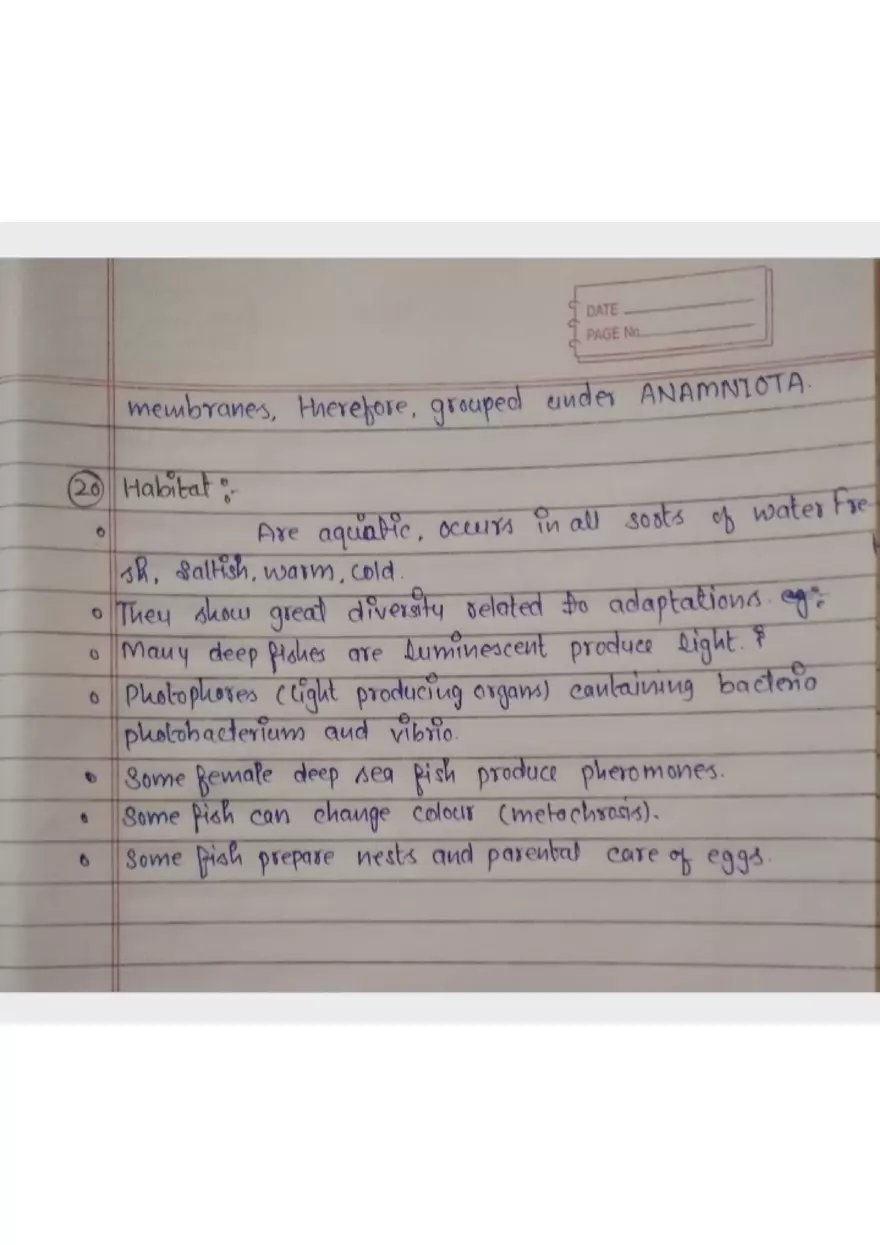 DATE
PAGE No.
membranes, therefore, grouped under ANAMNIOTA.
20 Habitat :-
Are aquatic, occurs in all sorts of water Fre-
sh, saltish, warm, cold.
They show great diversity related to adaptations. eg:-
Many deep fishes are luminescent produce light.
Photophores (light producing organs) containing bacteria
photobacterium and vibrio.
Some female deep sea fish produce pheromones.
Some fish can change colour (metachrosis).
Some fish prepare nests and parental care of eggs.